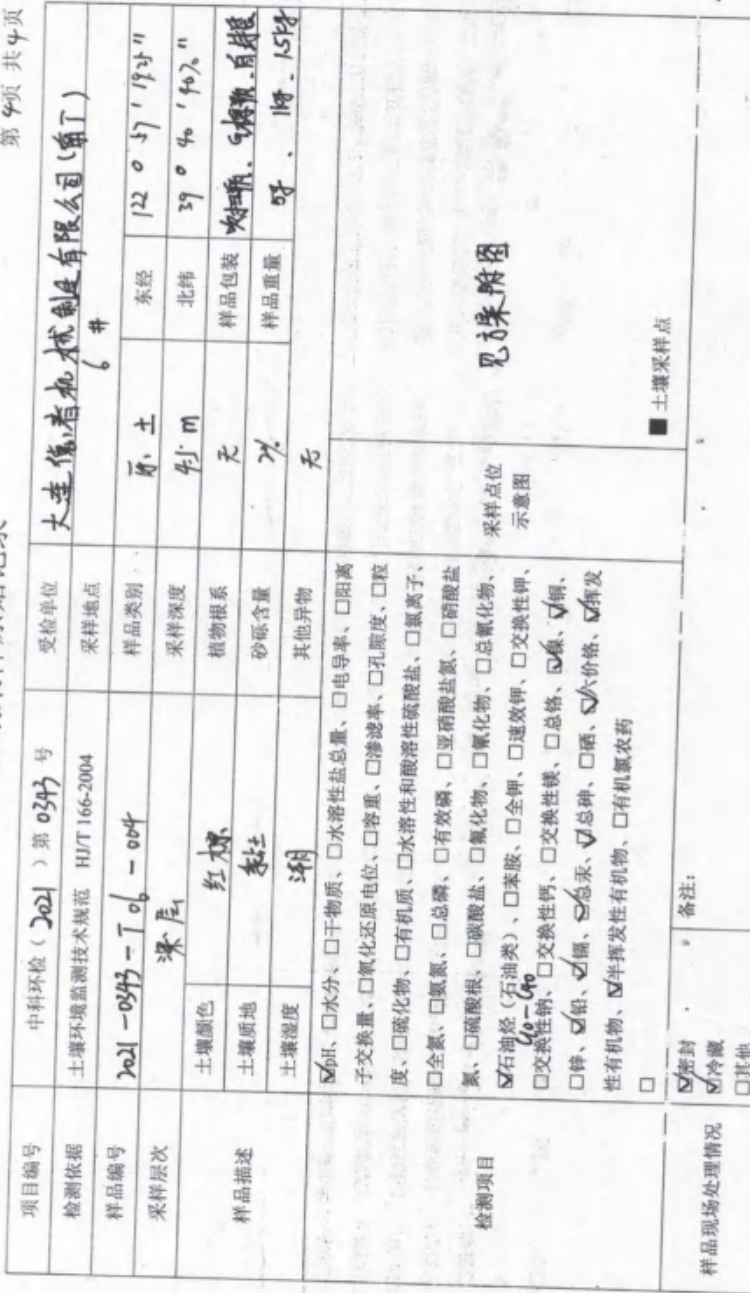 第4页 共4页
项目编号 中科环检（2021）第 0343 号 受检单位 大连信有机械制造有限公司
检测依据 土壤环境监测技术规范 HJ/T 166-2004 采样地点 6#
样品编号 2021-0343-T06-004 样品类别 土 东经 122° 57′
采样层次 深层 采样深度 m 北纬 39° 40′ 402″
样品描述 土壤颜色 红棕 植物根系 无 样品包装 吹扫瓶、棕瓶、自封袋
土壤质地 黏土 砂砾含量 2% 样品重量 5g、1kg、1.5kg
土壤湿度 潮 其他异物 无
检测项目
☑pH、□水分、□干物质、□水溶性盐总量、□电导率、□阳离
子交换量、□氧化还原电位、□容重、□渗滤率、□孔隙度、□粒
度、□硫化物、□有机质、□水溶性和酸溶性硫酸盐、□氯离子、
□全氮、□氨氮、□总磷、□有效磷、□亚硝酸盐氮、□硝酸盐
氮、□硫酸根、□碳酸盐、□氟化物、□氰化物、□总氰化物、
☑石油烃（石油类）、□苯胺、□全钾、□速效钾、□交换性钾、
C10-C40
□交换性钠、□交换性钙、□交换性镁、□总铬、☑镍、☑铜、
□锌、☑铅、☑镉、☑总汞、☑总砷、□硒、☑六价铬、☑挥发
性有机物、☑半挥发性有机物、□有机氯农药
□
采样点位
示意图
见方案附图
■ 土壤采样点
样品现场处理情况
☑密封
☑冷藏
□其他
备注：